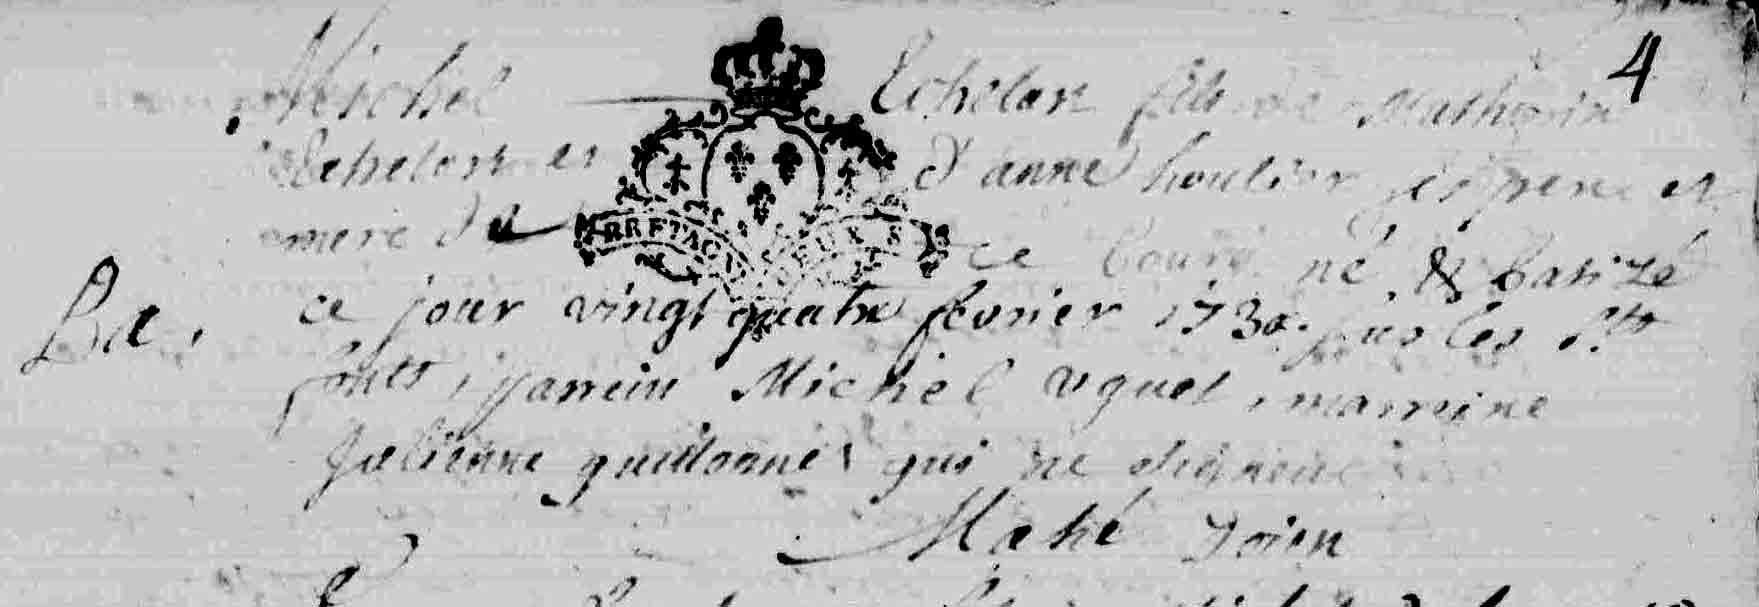 4
Michel Echelart fils de Mathurin
Echelart et d'anne houlier ses pere et
mere de ce bourg né & batizé
Ba. ce jour vingt quatre fevrier 173 sur les sts
fonts, parrein Michel uguet, marreine
Julienne qui ne signent
Mahé